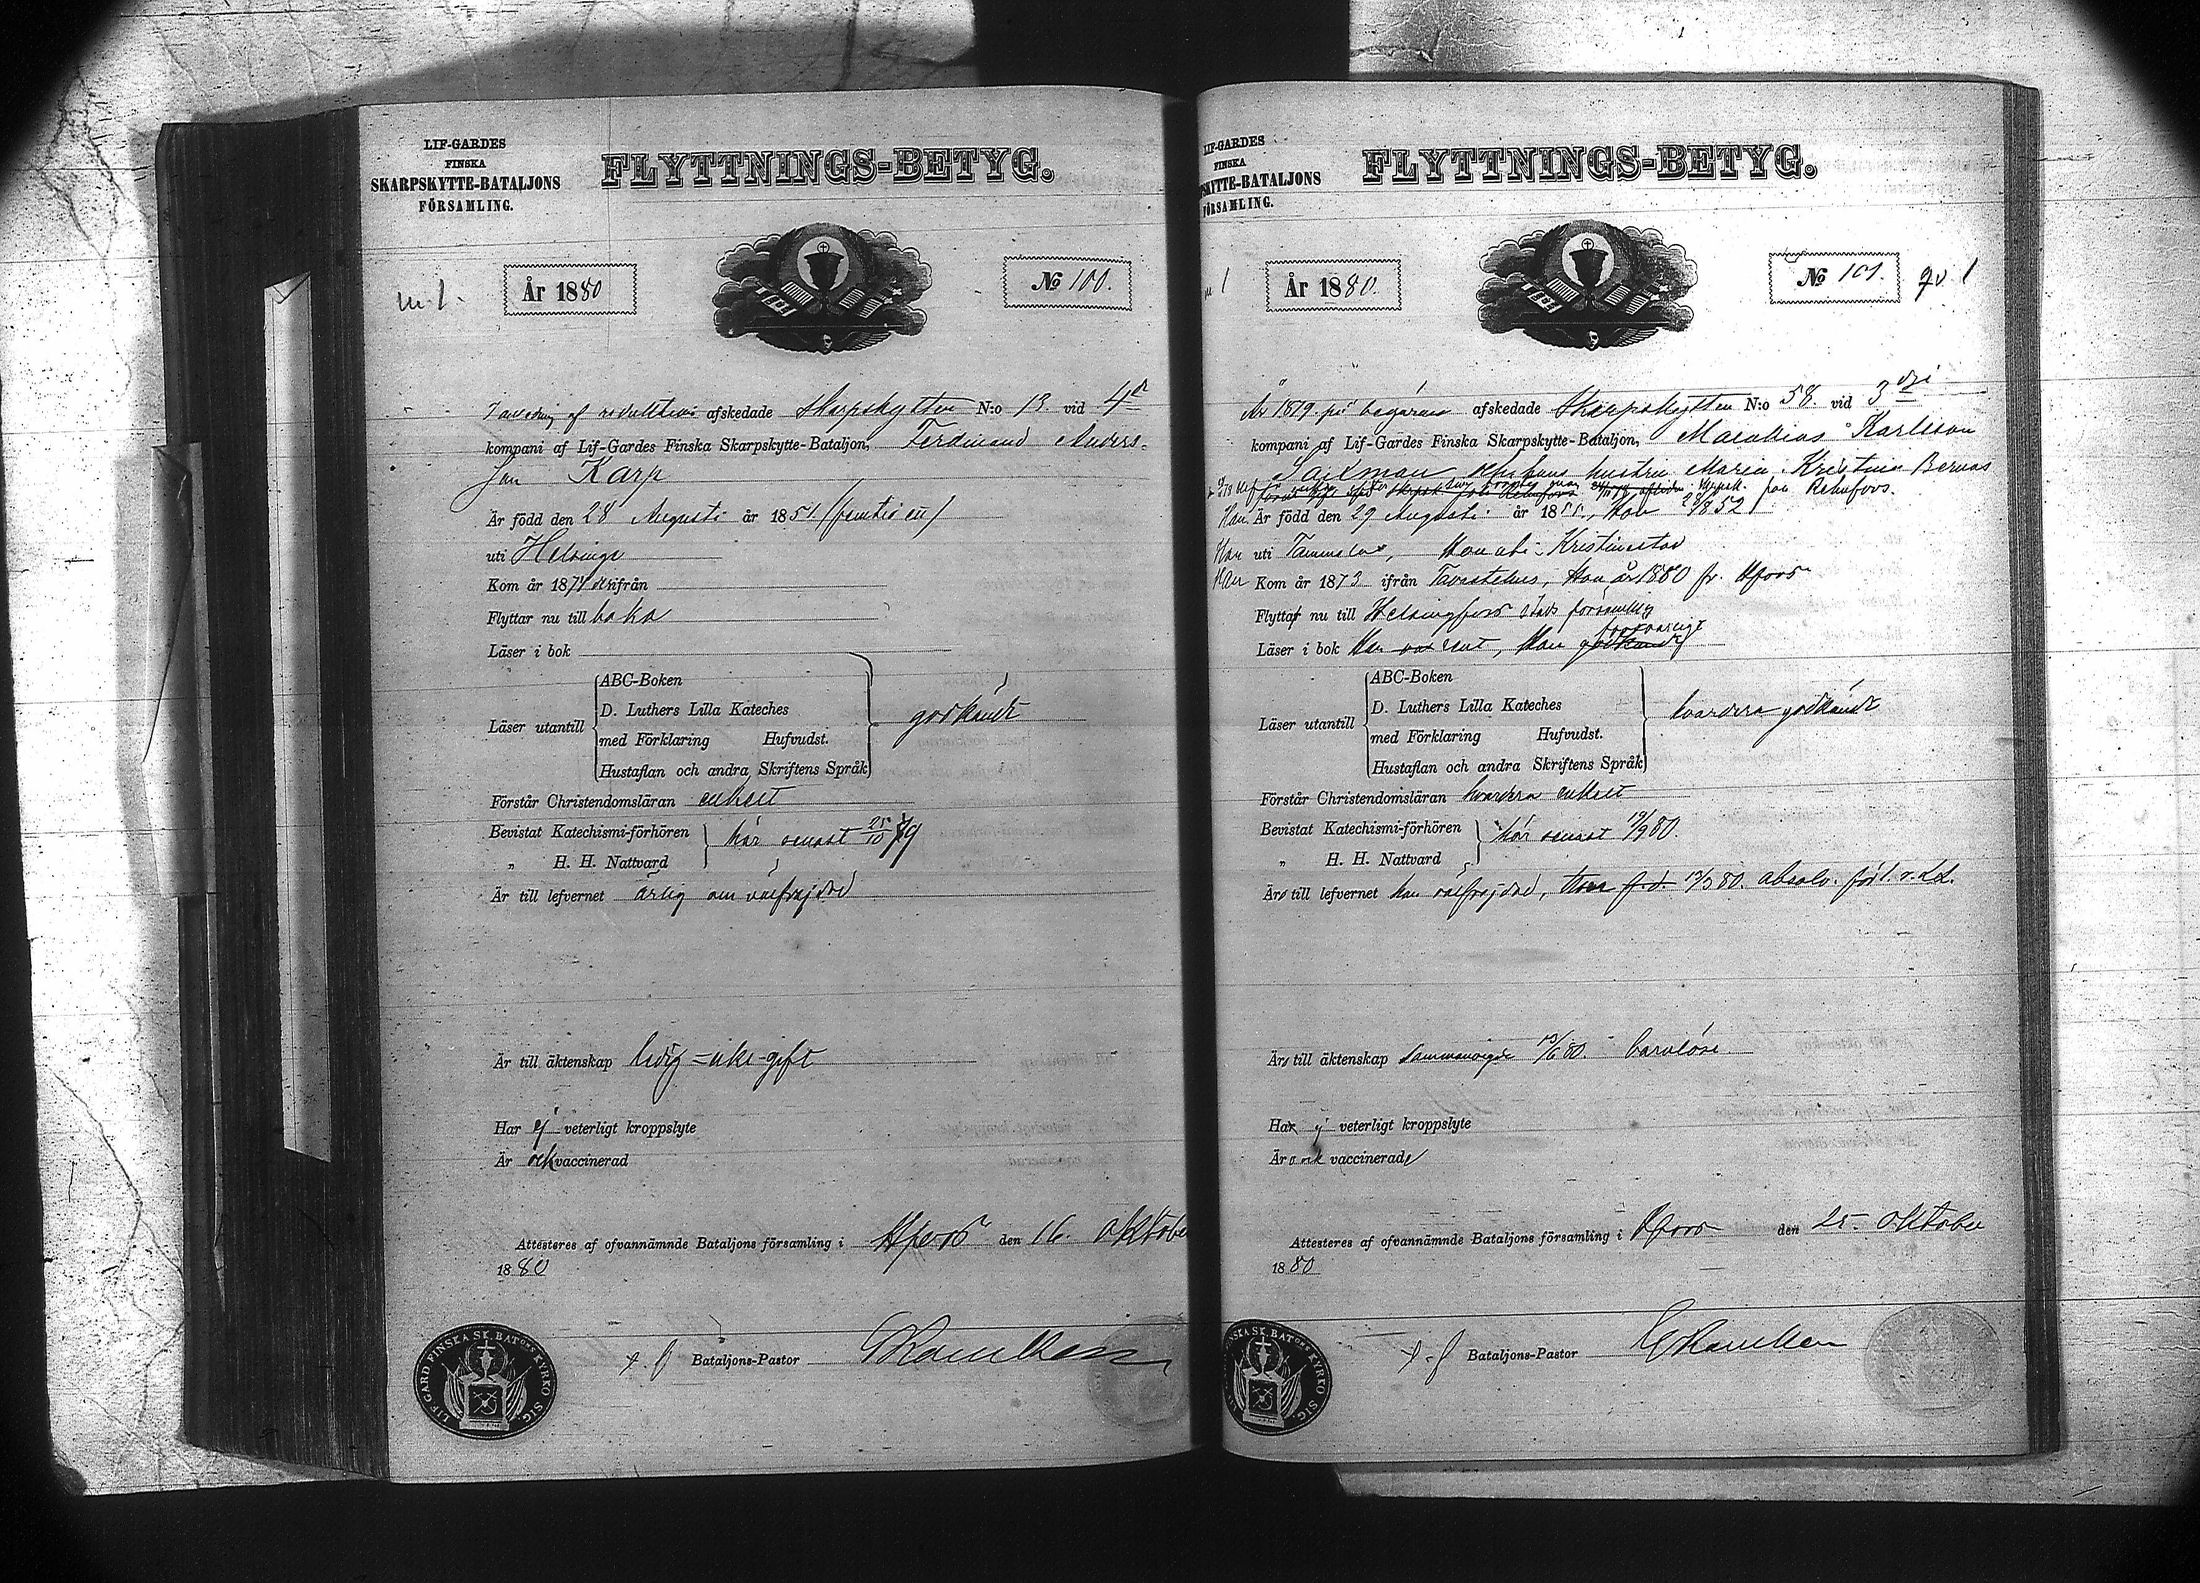 LIF-GARDES
FINSKA
SKARPSKYTTE-BATALJONS
FÖRSAMLING.
FLYTTNINGS-BETYG.
m 1.
År 1880
No 100.
af afskedade Skarpskytten N:o 13 vid 4de
kompani af Lif-Gardes Finska Skarpskytte-Bataljon, Ferdinand Anders-
son Karp
Är född den 28 Augusti år 1851 (femtio en)
uti Helsinge
Kom år 187 ifrån
Flyttar nu till
Läser i bok
ABC-Boken
D. Luthers Lilla Kateches
Läser utantill med Förklaring Hufvudst. godkändt
Hustaflan och andra Skriftens Språk
Förstår Christendomsläran enkelt
Bevistat Katechismi-förhören
här senast 25/10 79
" H. H. Nattvard
Är till lefvernet ärlig om välfrejdad
Är till äktenskap ledig = icke = gift
Har ej veterligt kroppslyte
Är ock vaccinerad
Attesteres af ofvannämnde Bataljons församling i Hfors den 16. Oktober
1880
Bataljons-Pastor
LIF-GARD FINSKA SK. BATONS KYRKO SIG.
LIF-GARDES
FINSKA
SKYTTE-BATALJONS
FÖRSAMLING.
FLYTTNINGS-BETYG.
1
År 1880.
No 101.
qv. 1
År 1879 på begäran afskedade Skarpskytten N:o 58. vid 3dje
kompani af Lif-Gardes Finska Skarpskytte-Bataljon, Karlsson
hustru Maria Kristina
från
Han Är född den 29 Augusti år 1855, Hon 1852
Han uti Tammela, Hon uti Kristinestad
Han Kom år 1873 ifrån Tavastehus, Hon år 1880 fr. Hfors
Flyttar nu till Helsingfors stads församling
försvarligt
Läser i bok Han rent, Hon godkändt
ABC-Boken
D. Luthers Lilla Kateches
Läser utantill med Förklaring Hufvudst. hvardera godkändt
Hustaflan och andra Skriftens Språk
Förstår Christendomsläran hvardera enkelt
Bevistat Katechismi-förhören
här senast 12/9 80.
" H. H. Nattvard
Äro till lefvernet han välfrejdad, 80. absolv. för l.
Äro till äktenskap sammanvigde 13/6 80. barnlöse
Har ej veterligt kroppslyte
Äro ock vaccinerade
Attesteres af ofvannämnde Bataljons församling i Hfors den 25 Oktober
1880
Bataljons-Pastor
FINSKA SK. BATONS KYRKO SIG.